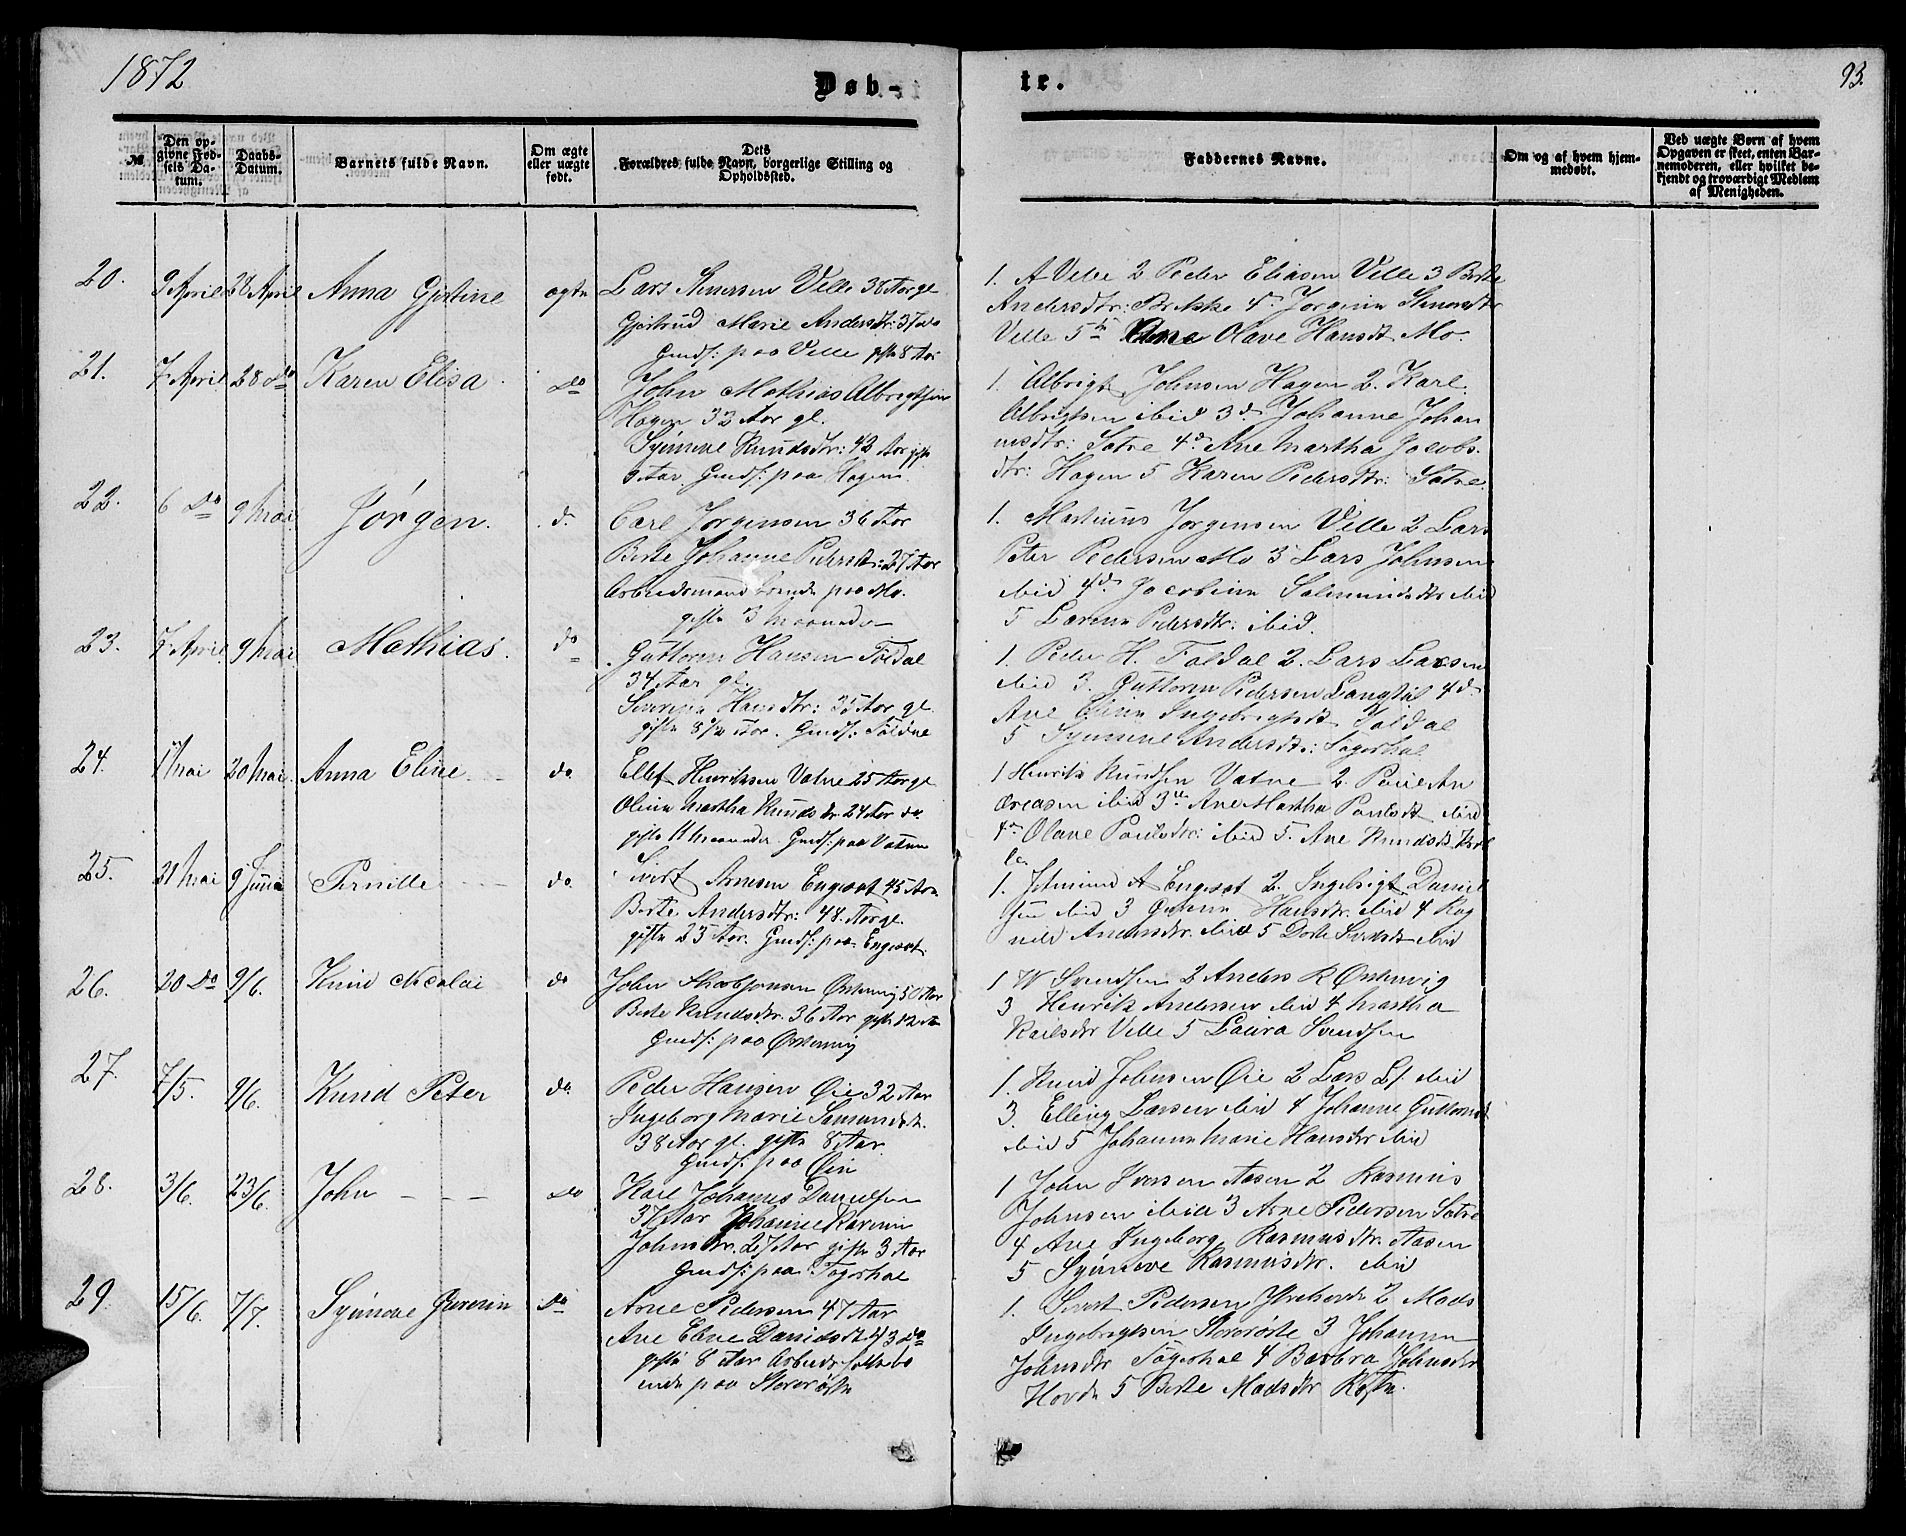 1872
Døb-
te.
93.
№
Den op-
givne Fød-
sels Da-
tum.
Daabs-
Datum.
Barnets fulde Navn.
Om ægte
eller uægte
født.
Dets
Forældres fulde Navn, borgerlige Stilling og
Opholdssted.
Faddernes Navne.
Om og af hvem hjem-
medøbt.
Ved uægte Børn af hvem
Opgaven er skeet, enten Bar-
nemoderen, eller hvilket be-
kjendt og troværdigt Medlem
af Menigheden.
20. 9 April 28 April Anna Gjertine ægte
Lars Velle 38 Aar gl
Gjertrud Marie Andersdtr: 37 do
Gmds: paa Velle gifte 8 Aar
1. A Velle 2 Peder Eliasen Velle 3 Berte
Andersdtr: Brekke 4 Jørgine
Velle 5 Olave Hansdt Mo.
21. 7 April 28 do Karen Elisa do
John Mathias Albrigtsen
Hagen 32 Aar gl.
Synneve Knudsdtr: 42 Aar gifte
Aar Gmds: paa Hagen
1. Albrigt Johnsen Hagen 2. Karl
Albrigtsen ibid 3 d Johanne Johan
nesdtr: Sætre 4 d Ane Martha Jacobs
dtr: Hagen 5 Karen Pedersdtr: Sætre
22. 6 do 9 Mai Jørgen. d.
Carl Jørgensen 36 Aar
Berte Johanne Pedersdt: 27 Aar
Arbeidsmand boende paa Mo.
gifte 3 maaneder
1. Martinus Jørgensen Velle 2 Lars
Peter Pedersen Mo 3 Lars Johnsen
ibid 4 d Jacobine ibid
5 Pedersdtr: ibid.
23. 7 April 9 Mai Mathias. do
Guttorm Hansen Foldal
34 Aar gl.
Hansdtr: 25 Aar gl.
gifte Aar. Gmds:
1. Peder H. Foldal 2. Lars Larsen
ibid 3. Guttorm Pedersen 4 d
Ane Ingebrigtsdt Foldal
5 Synneve Andersdtr:
24. 1 Mai 20 Mai. Anna Eline do.
Ellef Henriksen Vatne 25 Aar gl
Oline Martha Knudsdr 24 Aar do.
gifte 11 maaneder. Gmds: paa Vatne
1 Henrik Knudsen Vatne 2. An
dreasen ibid 3 Ane Martha Paulsdt ibid
4 Olane Paulsdtr: ibid 5. Ane Knudsdt
25. 21 Mai 9 Juni Pernille do.
Sivert Arnesen Engeset 45 Aar
Berte Andersdtr: 48. Aar gl.
gifte 23 Aar. Gmds: paa Engeset.
1. A Engeset 2. Ingebrigt Daniel
sen ibid 3 Hansdtr. ibid 4 Rag
nild ibid 5 Dorte ibid
26. 20 do 9/6. Knud Nicolai do
John 50 Aar
Berte Knudsdtr. 36 Aar gifte 12 Aar
Gmds: paa Ørstenvig
1 W Svendsen 2 Anders K Ørstenvig
3 Henrik Andersen ibid 4 Martha
Karlsdtr Velle 5 Laura Svendsen
27. 7/5. 9/6. Knud Peter do.
Peder Hansen Øie 32 Aar
Ingeborg Marie
38 Aar gl. gifte 8 Aar.
Gmds: paa Øie
1. Knud Johnsen Øie 2 Lars L: ibid
3. Elling Larsen ibid 4 Johanne
ibid 5 Johanne Marie Hansdtr ibid
28. 3/6. 23/6. John do
Karl Johannes Danielsen
37 Aar Karenine
Johnsdtr. 27 Aar gifte 3 Aar
Gmds: paa
1 John Iversen Aasen 2 Rasmus
Johnsen ibid 3 Arne Pedersen Sætre
4 Ane Ingeborg Rasmusdtr. Aasen
5 Synneve Rasmusdtr. ibid
29. 15/6. 7/7. Synneve do
Arne Pedersen 47 Aar
Ane Danielsdt 43 do
gifte 8 Aar bo
ende paa
1. Sivert Pedersen 2 Mads
Ingebrigtsen 3 Johanne
Johnsdtr 4 Barbra Johnsdtr
Hovde 5 Berte Madsdtr